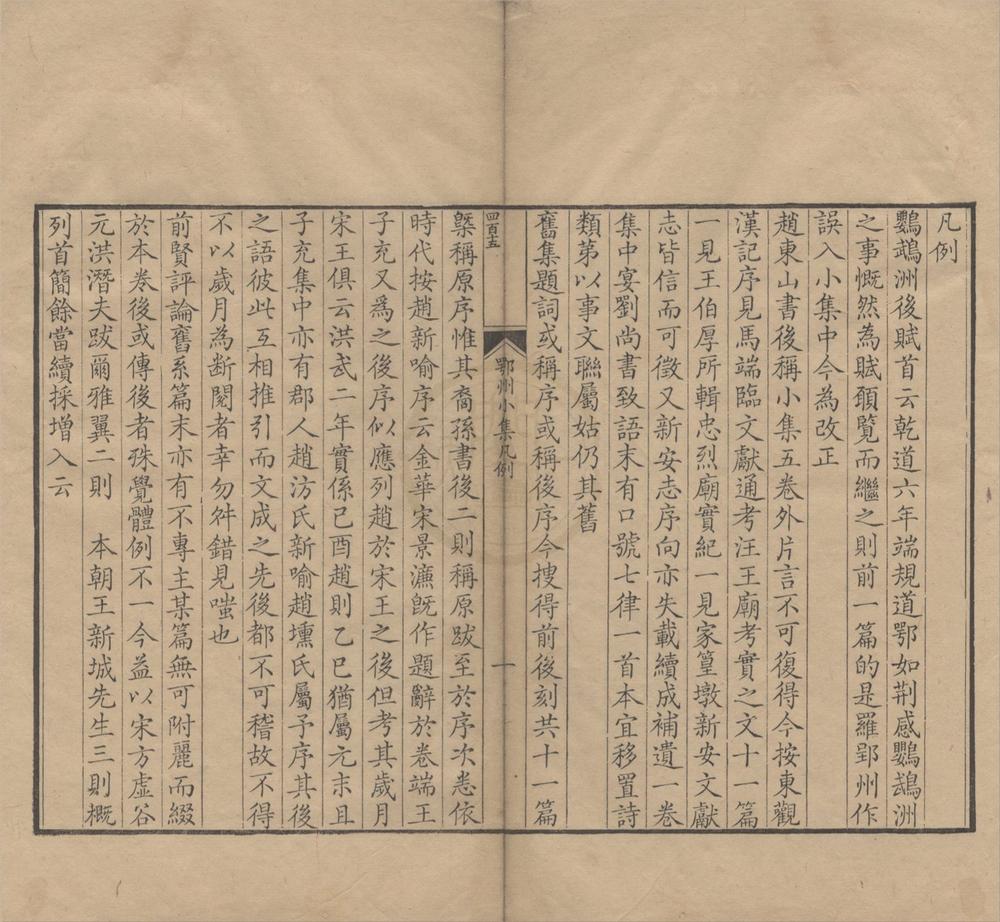 凡例
鸚鵡洲後賦首云乾道六年端規道鄂如荆感鸚鵡洲
之事慨然為賦頤覽而繼之則前一篇的是羅郢州作
誤入小集中今為改正
趙東山書後稱小集五卷外片言不可復得今按東觀
漢記序見馬端臨文獻通考汪王廟考實之文十一篇
一見王伯厚所輯忠烈廟實紀一見家篁墩新安文獻
志皆信而可徵又新安志序向亦失載續成補遺一卷
集中宴劉尚書致語末有口號七律一首本宜移置詩
類第以事文聯屬姑仍其舊
舊集題詞或稱序或稱後序今搜得前後刻共十一篇
四百十五
鄂州小集凡例
一
槩稱原序惟其裔孫書後二則稱原跋至於序次悉依
時代按趙新喻序云金華宋景濂旣作題辭於卷端王
子充又爲之後序似應列趙於宋王之後但考其歲月
宋王俱云洪武二年實係己酉趙則乙巳猶屬元末且
子充集中亦有郡人趙汸氏新喻趙壎氏屬予序其後
之語彼此互相推引而文成之先後都不可稽故不得
不以歲月為断閱者幸勿舛錯見嗤也
前賢評論舊系篇末亦有不專主某篇無可附麗而綴
於本卷後或傳後者殊覺體例不一今益以宋方虛谷
元洪潛夫跋爾雅翼二則　本朝王新城先生三則概
列首簡餘當續採增入云